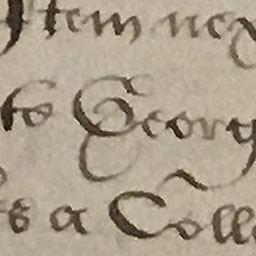 Item nex
to Georg
s a Colle